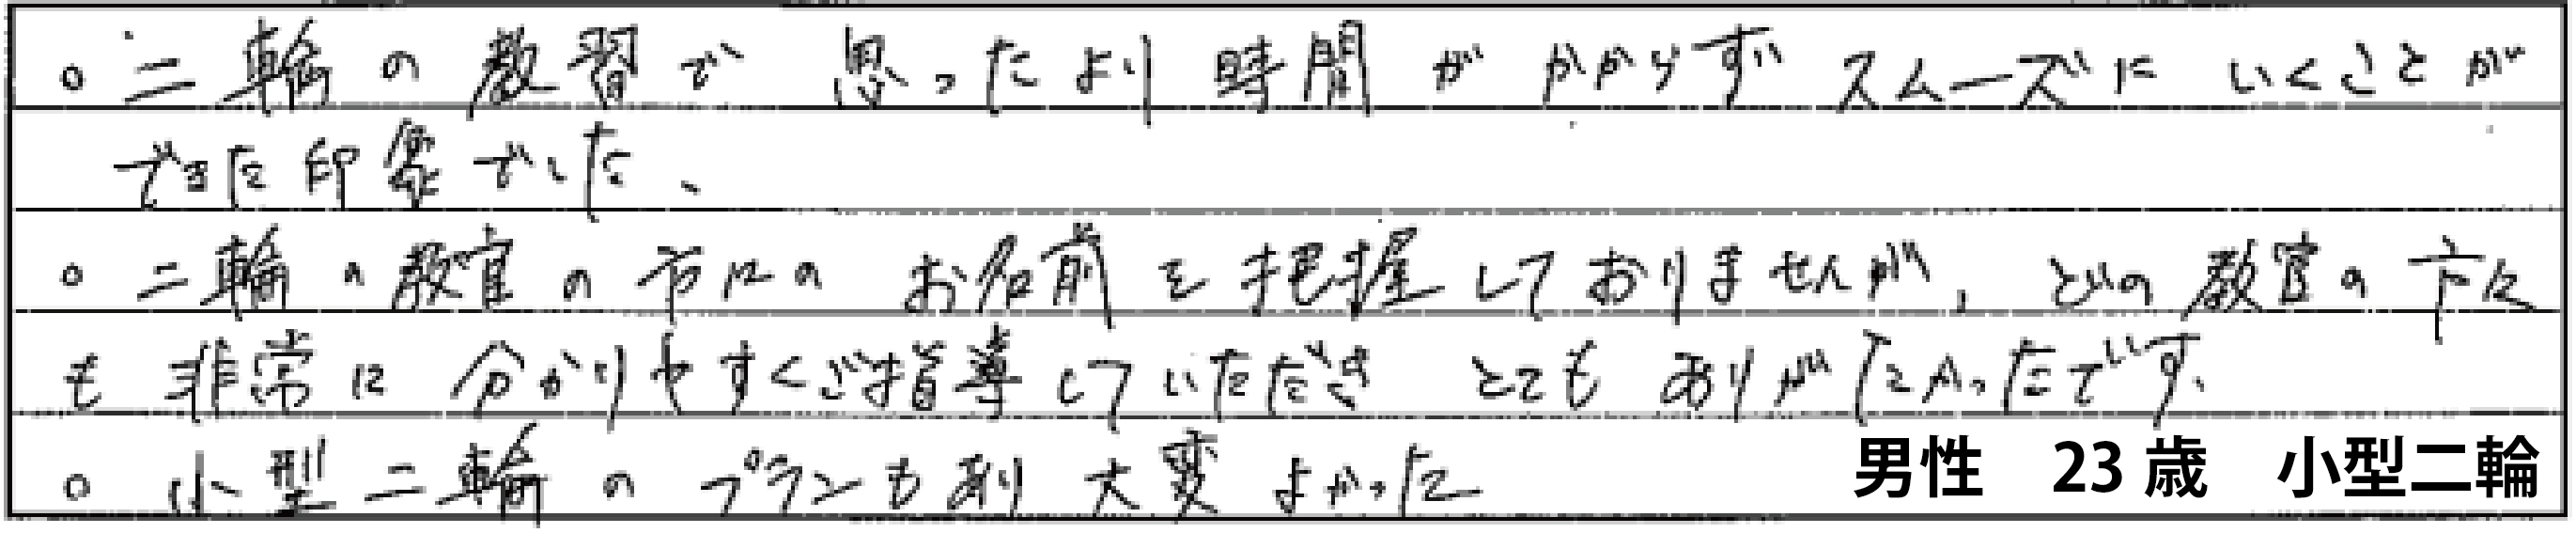 ○ 二輪の教習で 思ったより 時間が かからず スムーズに いくことが
できた印象でした、
○ 二輪の教官の方々の お名前を把握しておりませんが、どの教官の方々
も 非常に 分かりやすくご指導していただき とても ありがたかったです、
○ 小型二輪のプランもあり 大変よかった
男性 23歳 小型二輪